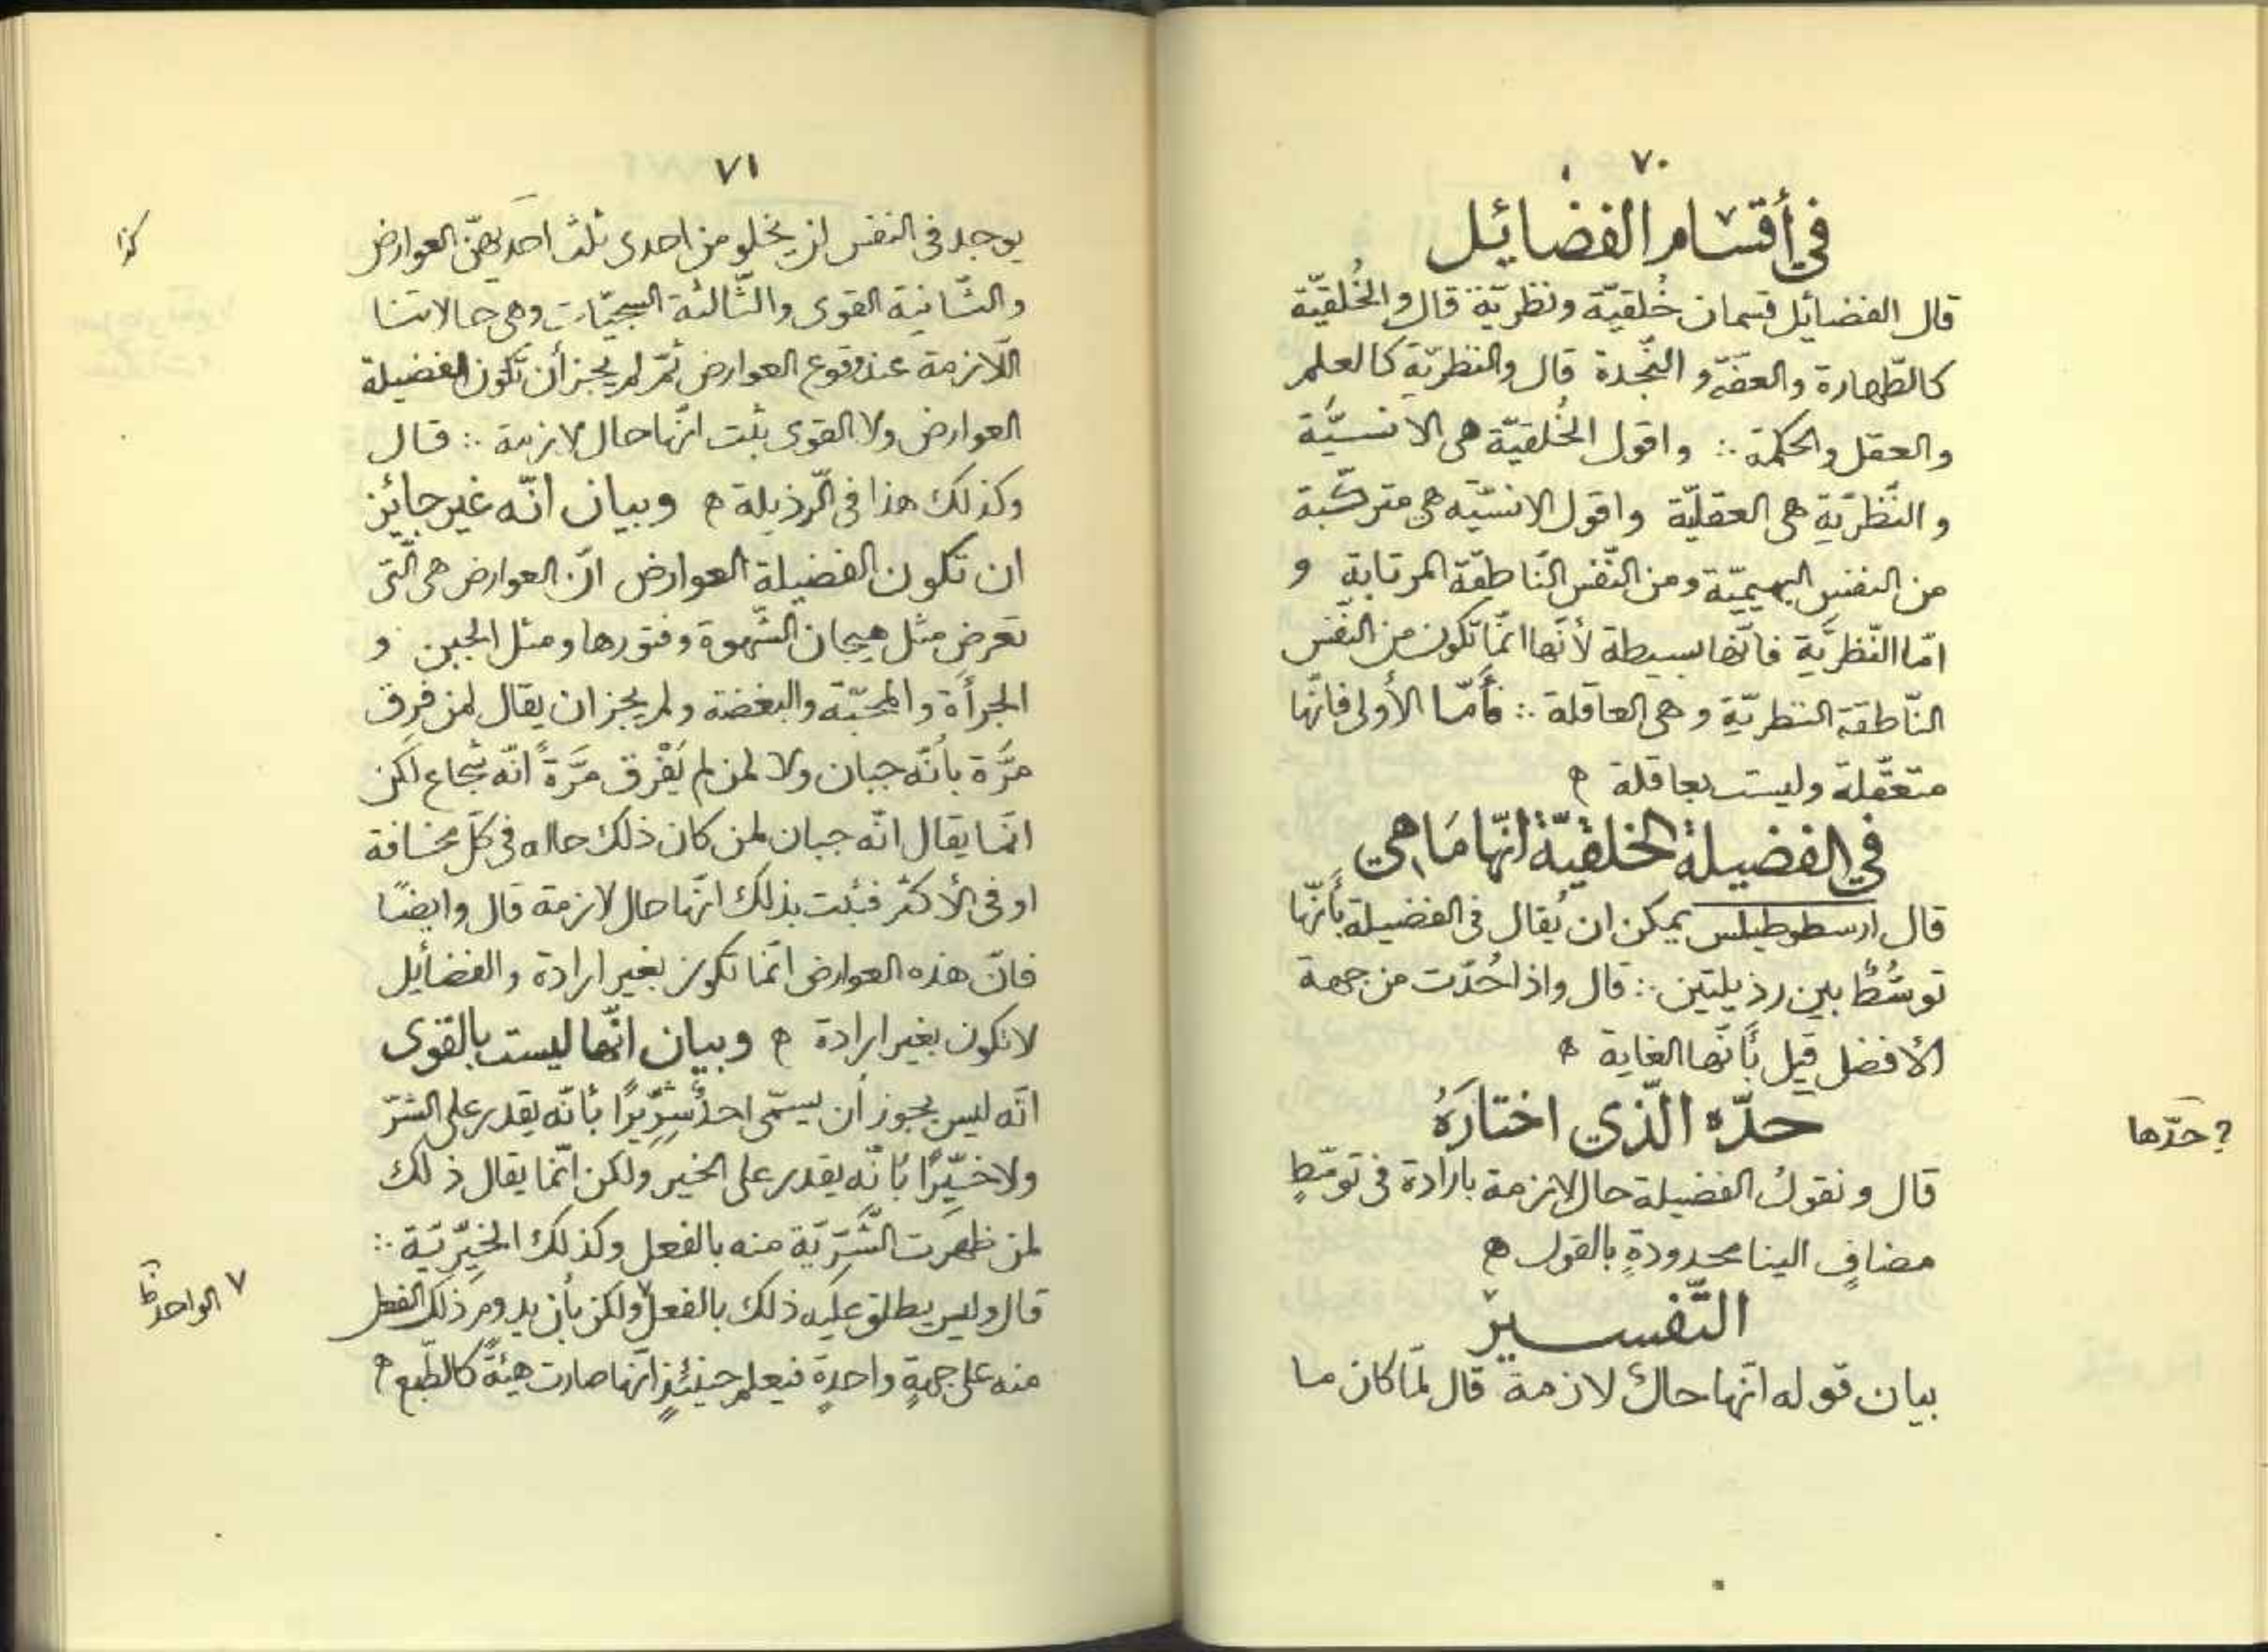 ٧٠
في أقسام الفضائيل
قال الفضائل قسمان خُلقيّة ونظريّة قال والخُلقيّة
كالطّهارة والعفّة و النّجدة قال والنظريّة كالعلم
والعقل والحكمة ∴ واقول الخُلقيّة هي الانسيَّة
والنّظريّة هي العقليّة واقول الانسيّة هي متركّبة
من النفس البهيميّة ومن النّفس النّاطقة المرتابة و
امّا النّظريَّة فانّها بسيطة لأنّها انّما تكون من النّفس
النّاطقة النظريّة وهي العاقلة ∴ فأمّا الأولى فانّها
متعقّلة وليست بعاقلة ه
في الفضيلة الخلقيّة انّها مَا هي
قال ارسطوطيلس يمكن ان يُقال في الفضيلة بأنّها
توسُّطٌ بين رذيلتين ∴ قال واذا حُدّت من جهة
الأفضل قيل بأنّها الغاية ه
حدّه الّذي اختارَهُ
? حدّها
قال ونقول الفضيلة حال لازمة بارادة في توسّطٍ
مضافٍ الينا محدودةٍ بالقول ه
التّفسير
بيان قوله انّها حالٌ لازمة قال لمّا كان ما
٧١
يوجد في النفس لن يخلو من احدى ثلث احديهنّ العوارض
كذا
والثّانية القوى والثّالثة السجيّات وهي حالاتنا
اللّازمة عند وقوع العوارض ثمّ لم يجز أن تكون الفضيلة
العوارض ولا القوى ثبت انّها حال لازمة ∴ قال
وكذلك هذا في الّرذيلة ه وبيان انّه غير جائز
ان تكون الفضيلة العوارض انّ العوارض هي الّتي
تعرض مثل هيجان الشّهوة وفتورها ومثل الجبن و
الجرأة والمحبّة والبغضة ولم يجز ان يقال لمن فرِق
مرَّة بأنّه جبان ولا لمن لم يَفْرق مَرَّةً انّه شجاع لكن
انّما يقال انّه جبان لمن كان ذلك حاله في كلّ مخافة
او في الأكثر فثبت بذلك انّها حال لازمة قال وايضًا
فانّ هذه العوارض انّما تكون بغير ارادة والفضائل
لا تكون بغير ارادة ه وبيان انّها ليست بالقوى
انّه ليس يجوز أن يسمّى احدٌ شِرّيرًا بأنّه يقدر على الشرّ
ولا خيّرًا بأنّه يقدر على الخير ولكن انّما يقال ذلك
لمن ظهرَت الشّرّيّة منه بالفعل وكذلك الخيّريّة ∴
قال وليس يطلق عليه ذلك بالفعل٧ ولكن بأن يدومَ ذلك الفعل
٧ الواحد ظ
منه على جهةٍ واحدةٍ فيعلم حينئذٍ انّها صارت هيئةً كالطّبع ه